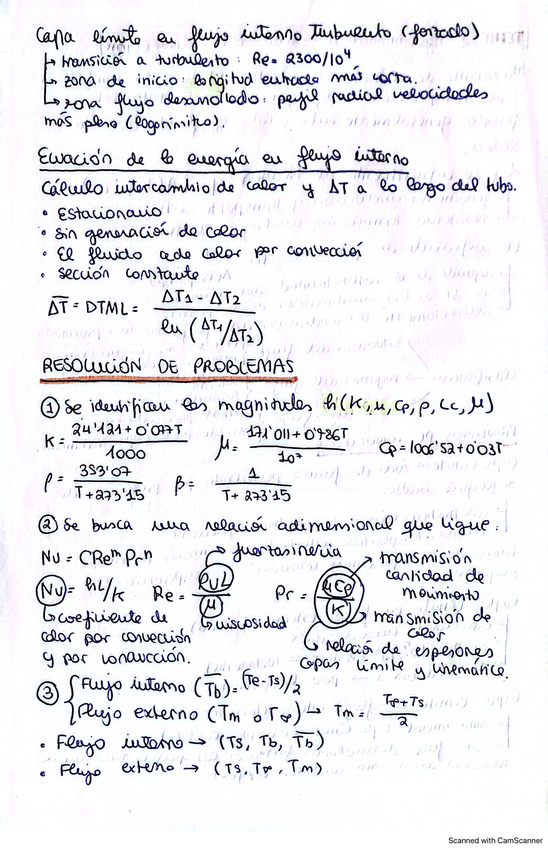 Capa límite en flujo interno turbulento (forzado)
↳ transición a turbulento: Re = 2300/10⁴
↳ zona de inicio: longitud entrada más corta.
↳ zona flujo desarrollado: perfil radial velocidades
más plano (logarítmico).
Ecuación de la energía en flujo interno
Cálculo intercambio de calor y ΔT a lo largo del tubo.
• Estacionario
• Sin generación de calor
• El fluido cede calor por convección
• Sección constante
ΔT̅ = DTML = (ΔT1 - ΔT2) / ln(ΔT1/ΔT2)
RESOLUCIÓN DE PROBLEMAS
① Se identifican las magnitudes h(K, u, Cp, ρ, Lc, μ)
K = (24'121 + 0'077T) / 1000 μ = (171'011 + 0'786T) / 10⁷ Cp = 1006'52 + 0'03T
ρ = 353'07 / (T + 273'15) β = 1 / (T + 273'15)
② Se busca una relación adimensional que ligue.
Nu = C Reᵐ Prⁿ → fuerzas inercia → transmisión
cantidad de
movimiento
Nu = hL/K Re = ρUL / μ Pr = μCp / K
↳ viscosidad → transmisión de
calor
↳ coeficiente de
calor por convección
y por conducción.
↳ relación de espesores
capas límite y cinemática.
③ { Flujo interno (T̅b) = (Te-Ts)/2
Flujo externo (Tm o T∞) → Tm = (T∞ + Ts) / 2
• Flujo interno → (Ts, Tb, T̅b)
• Flujo externo → (Ts, T∞, Tm)
Scanned with CamScanner